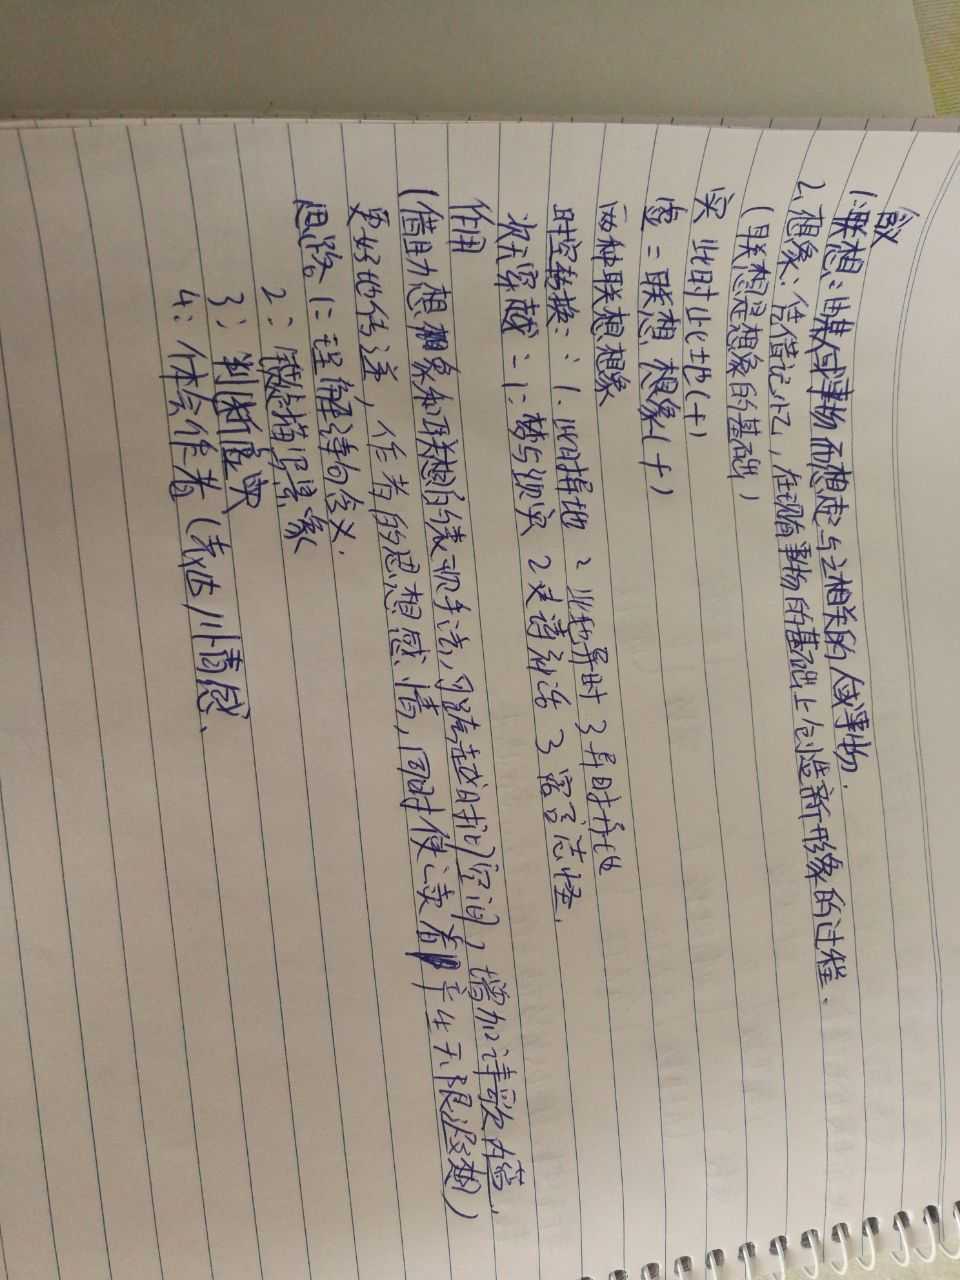 定义
1:联想:由某人或事物而想起与之相关的人或事物.
2、想象:凭借记忆,在现有事物的基础上创造新形象的过程、
(联想是想象的基础)
实 此时此地(+)
虚=联想 想象(+)
两种联想想象
时空转换:1.此时异地 2 此地异时 3 异时异地
次元穿越:1:梦与现实 2 史诗神话 3 寓言志怪.
作用
(借助力想想象和联想的表现手法,可跨越时间空间,增加诗歌内容,
更好地传达,作者的思想感情,同时使读者产生无限遐想)
思路:1:理解诗句含义.
2:概括描写景象
3:判断虚实
4:体会作者(表达)情感、